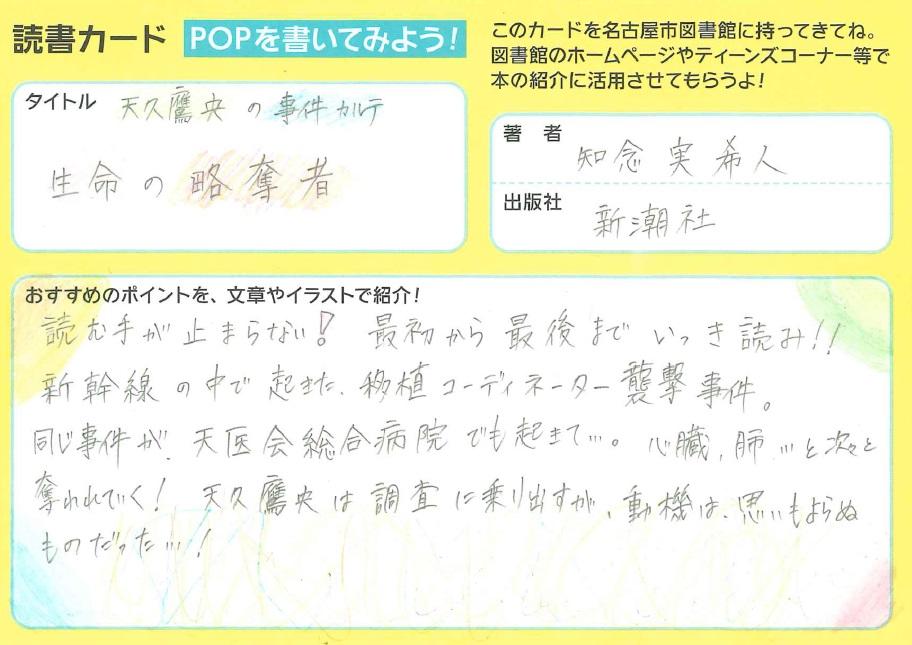 読書カード POPを書いてみよう!
このカードを名古屋市図書館に持ってきてね。
図書館のホームページやティーンズコーナー等で
本の紹介に活用させてもらうよ!
タイトル 天久鷹央の事件カルテ
生命の略奪者
著者 知念実希人
出版社 新潮社
おすすめのポイントを、文章やイラストで紹介!
読む手が止まらない! 最初から最後までいっき読み!!
新幹線の中で起きた、移植コーディネーター襲撃事件。
同じ事件が、天医会総合病院でも起きて…。心臓、肺…と次々と
奪われていく! 天久鷹央は調査に乗り出すが、動機は、思いもよらぬ
ものだった…!